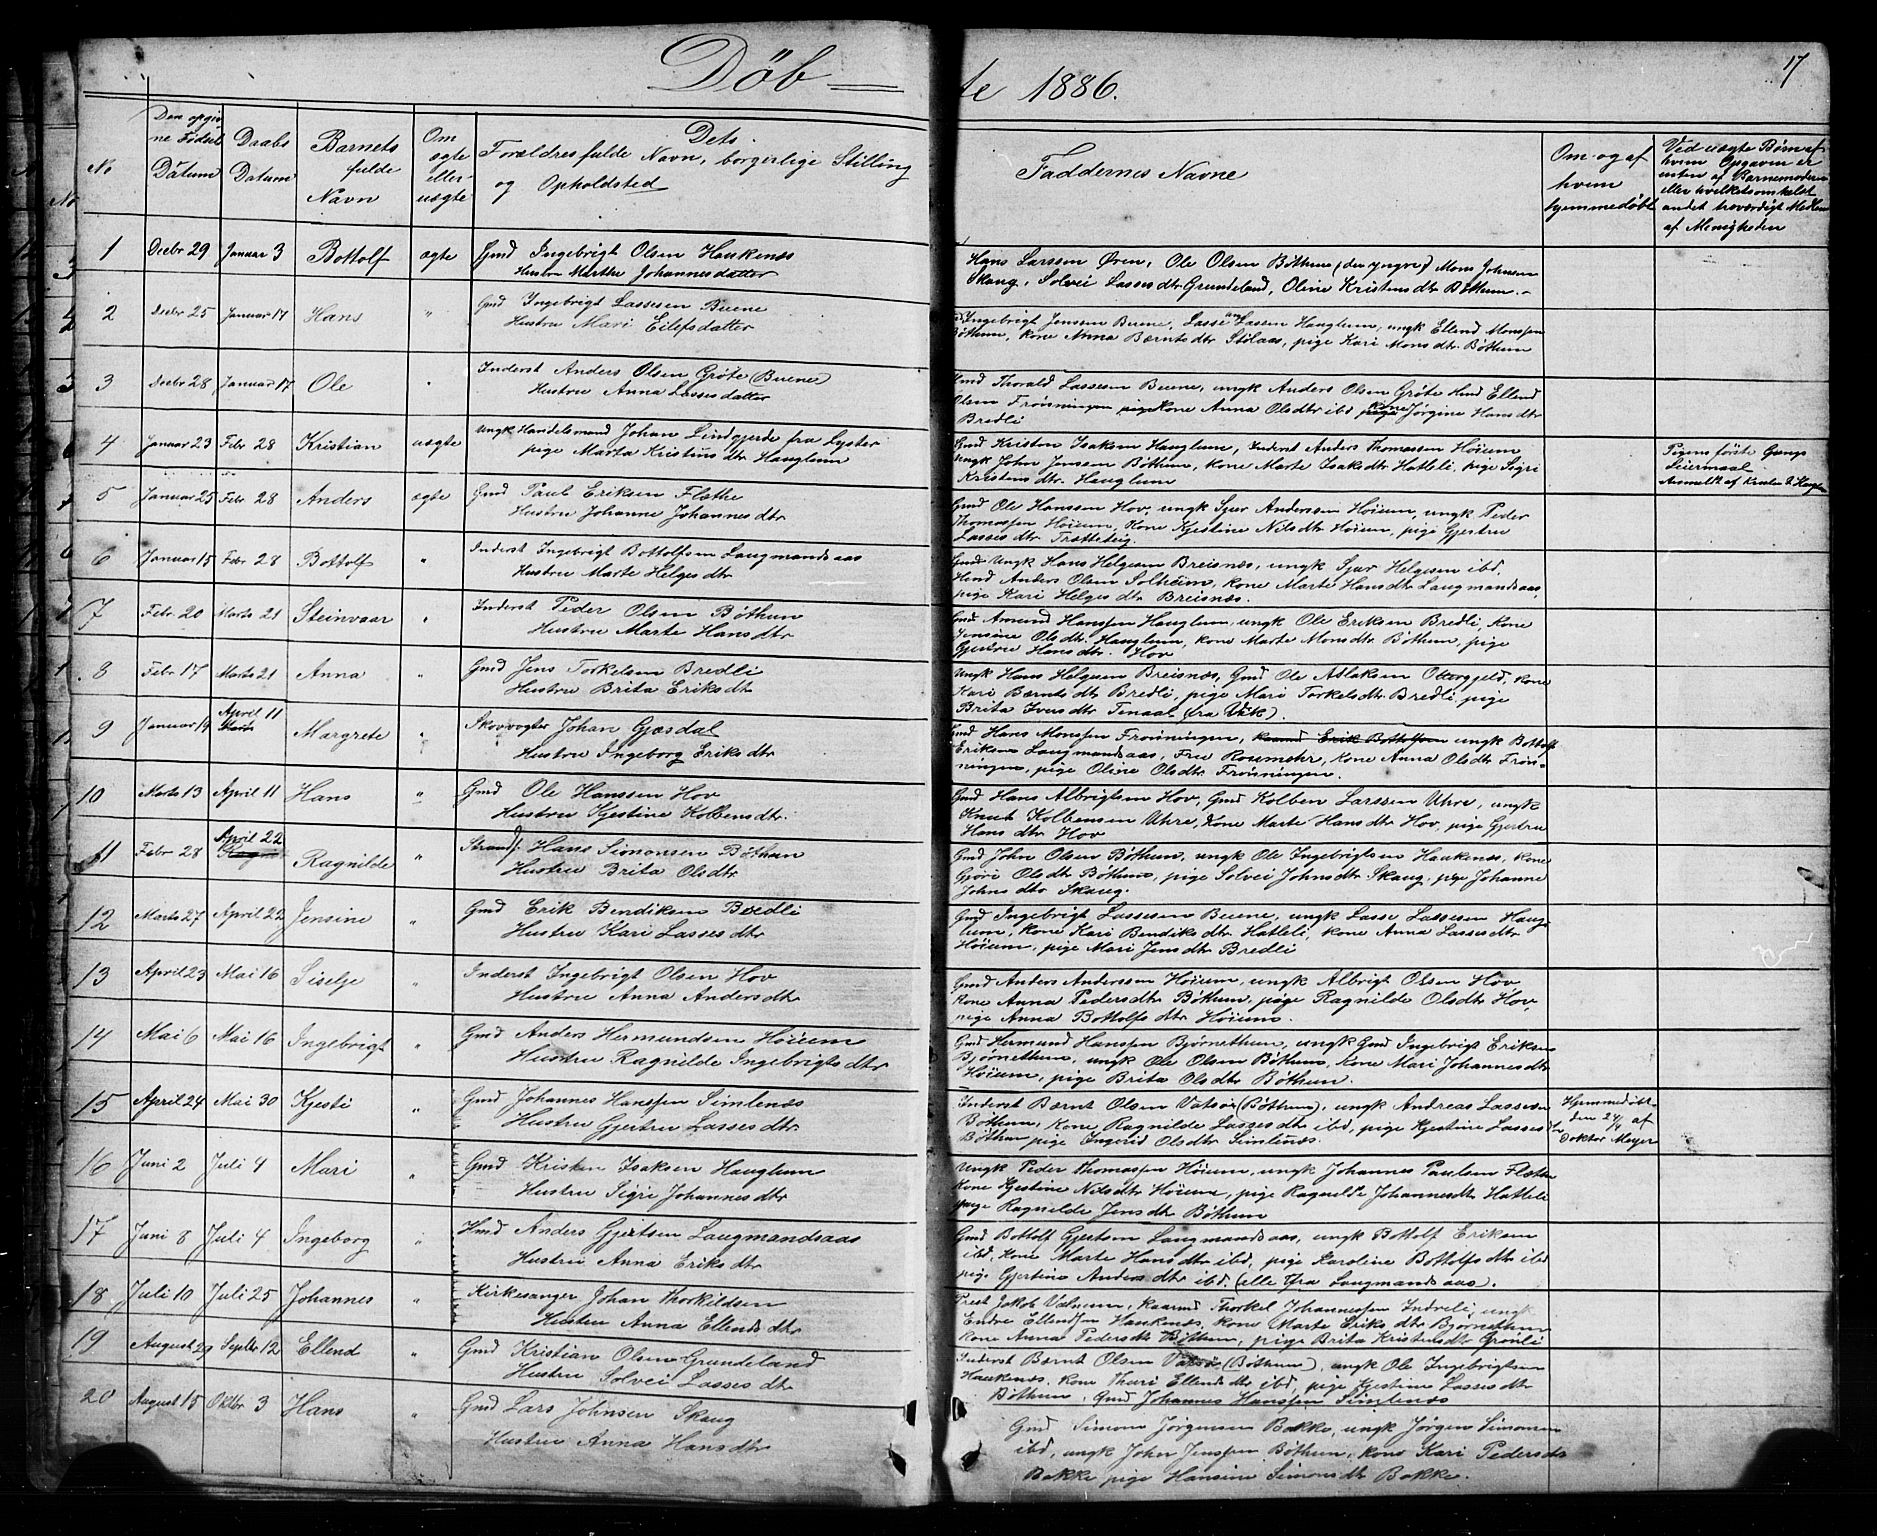 Døb-
te 1886.
17
No
Den opgiv
ne Fødsels
Datum
Daabs
Datum
Barnets
fulde
Navn
Om
ægte
eller
uægte
Dets
Forældres fulde Navn, borgerlige Stilling
og Opholdsted
Faddernes Navne
Om og af
hvem
hjemmedøbt
Ved uægte Børn af
hvem Opgaven er
enten af Barnemoderen
eller hvilketsomhelst
andet troværdigt Medlem
af Menigheden
1 Decbr 29 Januar 3 Bottolf ægte Gmd Ingebrigt Olsen Haukenæs
Hustru Marthe Johannesdatter
Hans Larssen Øren, Ole Olsen Bøthun (den yngre) Mons Johnsen
Skaug, Solvei Lassesdtr Grundeland, Oline Kristensdtr Bøthun.
2 Decbr 25 Januar 17 Hans " Gmd Ingebrigt Lassesen Buene
Hustru Mari Eilefsdatter
Ingebrigt Jenssen Buene, Lasse Lassen Hauglum, ungk Ellend Monssen
Bøthun, kone Anna Bærntsdtr Stølaas, pige Kari Monsdtr. Bøthum
3 Decbr 28 Januar 17 Ole " Inderst Anders Olsen Grøte (Buene)
Hustru Anna Lassesdatter
Gmd Thorald Lassesen Buene, ungk Anders Olsen Grøte Hmd Ellend
Olsen Frønningen pige Kone Anna Olsdtr ibd pige kone Jørgine Hansdtr
Bredli
4 Januar 23 Febr 28 Kristian uægte Ungk Handelsmand Johan Lindgjerde fra Lyster
pige Marta Kristensdtr Hauglum
Gmd Kristen Isaksen Hauglum, Inderst Anders Thomassen Høium
Ungk John Jensen Bøthun, kone Marte Isaksdtr Hatleli, pige Sigri
Kristensdtr. Hauglum
Pigens første Gangs
Leiermaal
Anmeldt af Kristen I. Hauglum
5 Januar 25 Febr 28 Anders ægte Gmd Paul Eriksen Flæthe
Hustru Johanne Johannesdtr
Gmd Ole Hanssen Hov, ungk Sjur Anderssen Høium, ungk Peder
Thomassen Høium, Kone Kjestine Nilsdtr Høium, pige Gjertru
Lassesdtr Trætteteig.
6 Januar 15 Febr 28 Bottolf " Inderst Ingebrigt Bottolfsen Laugmandsaas
Hustru Marte Helgesdtr
Gmd Ungk Hans Helgesen Breisnæs, ungk Sjur Helgesen ibd,
Hmd Anders Olsen Solheim, kone Marte Hansdtr Laugmandsaas,
pige Kari Helgesdtr Breisnæs.
7 Febr 20 Marts 21 Steinvaar " Inderst Peder Olsen Bøthun
Hustru Marte Hansdtr
Gmd Amund Hanssen Hauglum, ungk Ole Eriksen Bredli, Kone
Jensine Olsdtr. Hauglum, kone Marte Monsdtr Bøthum, pige
Gjertru Hansdtr. Hov
8 Febr 17 Marts 21 Anna " Gmd Jens Torkelsen Bredli
Hustru Brita Eriksdtr
Ungk Hans Helgesen Breisnæs, Gmd Ole Aslaksen Ottergjeld, kone
Kari Bærntsdtr Bredli, pige Mari Torkelsdtr Bredli, pige
Brita Iversdtr Tenaal (fra Vik).
9 Januar 19 April 11 Margrete " Skovvogter Johan Gjæsdal
Hustru Ingeborg Eriksdtr
Gmd Hans Monssen Frønningen, kaarmd Erik Bottolfsen ungk Bottolf
Eriksen Laugmandsaas, Fru Rosemehr, kone Anna Olsdtr Frøn-
ningen, pige Oline Olsdtr Frønningen.
10 Marts 13 April 11 Hans " Gmd Ole Hanssen Hov
Hustru Kjestine Kolbensdtr.
Gmd Hans Albrigtsen Hov, Gmd Kolben Larssen Uhre, ungk
Knut Kolbensen Uhre, Kone Marte Hansdtr Hov, pige Gjertru
Hansdtr Hov
11 Febr 28 April 22 Ragnilde " Strands. Hans Simonsen Bøthun
Hustru Brita Olsdtr
Gmd John Olsen Bøthun, ungk Ole Ingebrigtsen Haukenæs, kone
Gjøri Olsdtr Bøthun, pige Solvei Johnsdtr Skaug, pige Johanne
Johnsdtr Skaug.
12 Marts 27 April 22 Jensine " Gmd Erik Bendiksen Bredli
Hustru Kari Lassesdtr
Gmd Ingebrigt Lassesen Buene, ungk Lasse Lassesen Haug-
lum, kone Kari Bendiksdtr Hatleli, kone Anna Lassesdtr
Høium, pige Mari Jensdtr Bredli
13 April 23 Mai 16 Siselje " Inderst Ingebrigt Olsen Hov
Hustru Anna Andersdtr
Gmd Anders Anderssen Høium, ungk Albrigt Olsen Hov
Kone Anna Pedersdtr Bøthun, pige Ragnilde Olsdtr Hov,
pige Anna Bottolfsdtr Høium.
14 Mai 6 Mai 16 Ingebrigt " Gmd Anders Hermundsen Høium
Hustru Ragnilde Ingebrigtsdtr
Gmd Hermund Hanssen Bjørnethun, ungk Gmd Ingebrigt Eriksen
Bjørnethun, ungk Ole Olsen Bøthun, Kone Mari Johannesdtr
Høium, pige Brita Olsdtr Bøthun.
15 April 24 Mai 30 Kjesti " Gmd Johannes Hanssen Simlenæs
Hustru Gjertru Lassesdtr.
Inderst Bærnt Olsen Vatsør (Bøthun), ungk Andreas Lassesen
Bøthun, Kone Ragnilde Lassesdtr ibd, pige Kjestine Lassesdtr
Bøthun pige Ingerid Olsdtr Simlenæs.
Hjemmedøbt
den 24/4 af
Doktor Meyer
16 Juni 2 Juli 4 Mari " Gmd Kristen Isaksen Hauglum
Hustru Sigri Johannesdtr
Ungk Peder Thomassen Høium, ungk Johannes Paulsen Flæthe
Kone Kjestine Nilsdtr Høium, pige Ragnilde Johannesdtr Hatleli
pige Ragnilde Jensdtr Bøthun
17 Juni 8 Juli 4 Ingeborg " Hmd Anders Gjertsen Laugmandsaas
Hustru Anna Eriksdtr
Gmd Bottolf Gjertsen Laugmandsaas, ungk Bottolf Eriksen
ibd, Kone Marte Hansdtr ibd, pige Karoline Bottolfsdtr ibd
pige Gjertine Andersdtr ibd. (alle fra Laugmandsaas).
18 Juli 10 Juli 25 Johannes " Kirkesanger Johan Thorkildsen
Hustru Anna Ellendsdtr
Prest Jakob Valnum, kaarmd Thorkel Johannessen Indreli, ungk
Endre Ellendsen Haukenæs, kone Marte Eriksdtr Bjørnethun
kone Anna Pedersdtr Bøthum, pige Brita Kristensdtr Grønli
19 August 29 Septbr 12 Ellend " Gmd Kristian Olsen Grundeland
Hustru Solvei Lassesdtr
Inderst Bærnt Olsen Vatsør (Bøthum), ungk Ole Ingebrigtsen
Haukenæs, kone Thuri Ellendsdtr ibd, pige Kjestine Lassesdtr
Bøthun, Gmd Johannes Hanssen Simlenæs
20 August 15 Oktbr 3 Hans " Gmd Lars Johnsen Skaug
Hustru Anna Hansdtr
Gmd Simon Jørgensen Bakke, ungk Jørgen Simonsen
ibd, ungk John Jenssen Bøthun, kone Kari Pedersdtr
Bakke pige Hansine Simonsdtr Bakke.